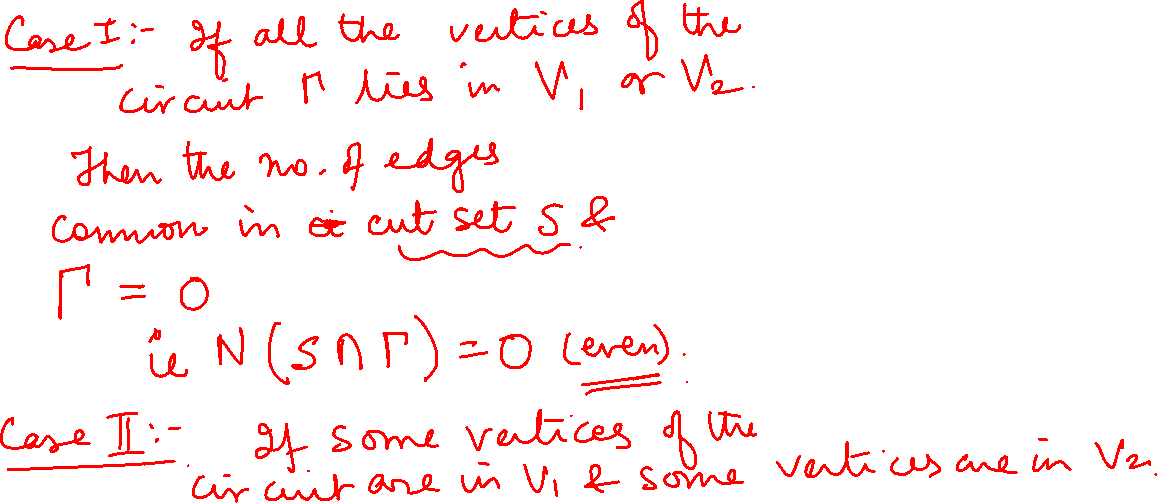 Case I :- If all the vertices of the
circuit Γ lies in V₁ or V₂.
Then the no. of edges
common in cut set S &
Γ = 0
ie N(S ∩ Γ) = 0 (even).
Case II :- If some vertices of the
circuit are in V₁ & some vertices are in V₂.